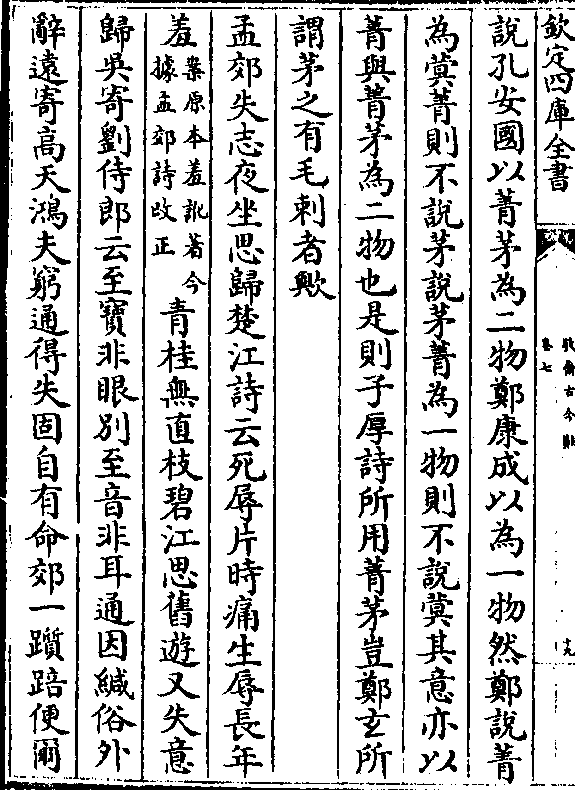 欽定四庫全書
卷七
說孔安國以菁茅為二物鄭康成以為一物然鄭說菁
為蓂菁則不說茅說茅菁為一物則不說蓂其意亦以
菁與菁茅為二物也是則子厚詩所用菁茅豈鄭玄所
謂茅之有毛刺者歟
孟郊失志夜坐思歸楚江詩云死辱片時痛生辱長年
羞案原本羞訛著今據孟郊詩改正青桂無直枝碧江思舊遊又失意
歸吳寄劉侍郎云至寶非眼別至音非耳通因緘俗外
辭遠寄高天鴻夫窮通得失固自有命郊一躓踣便爾